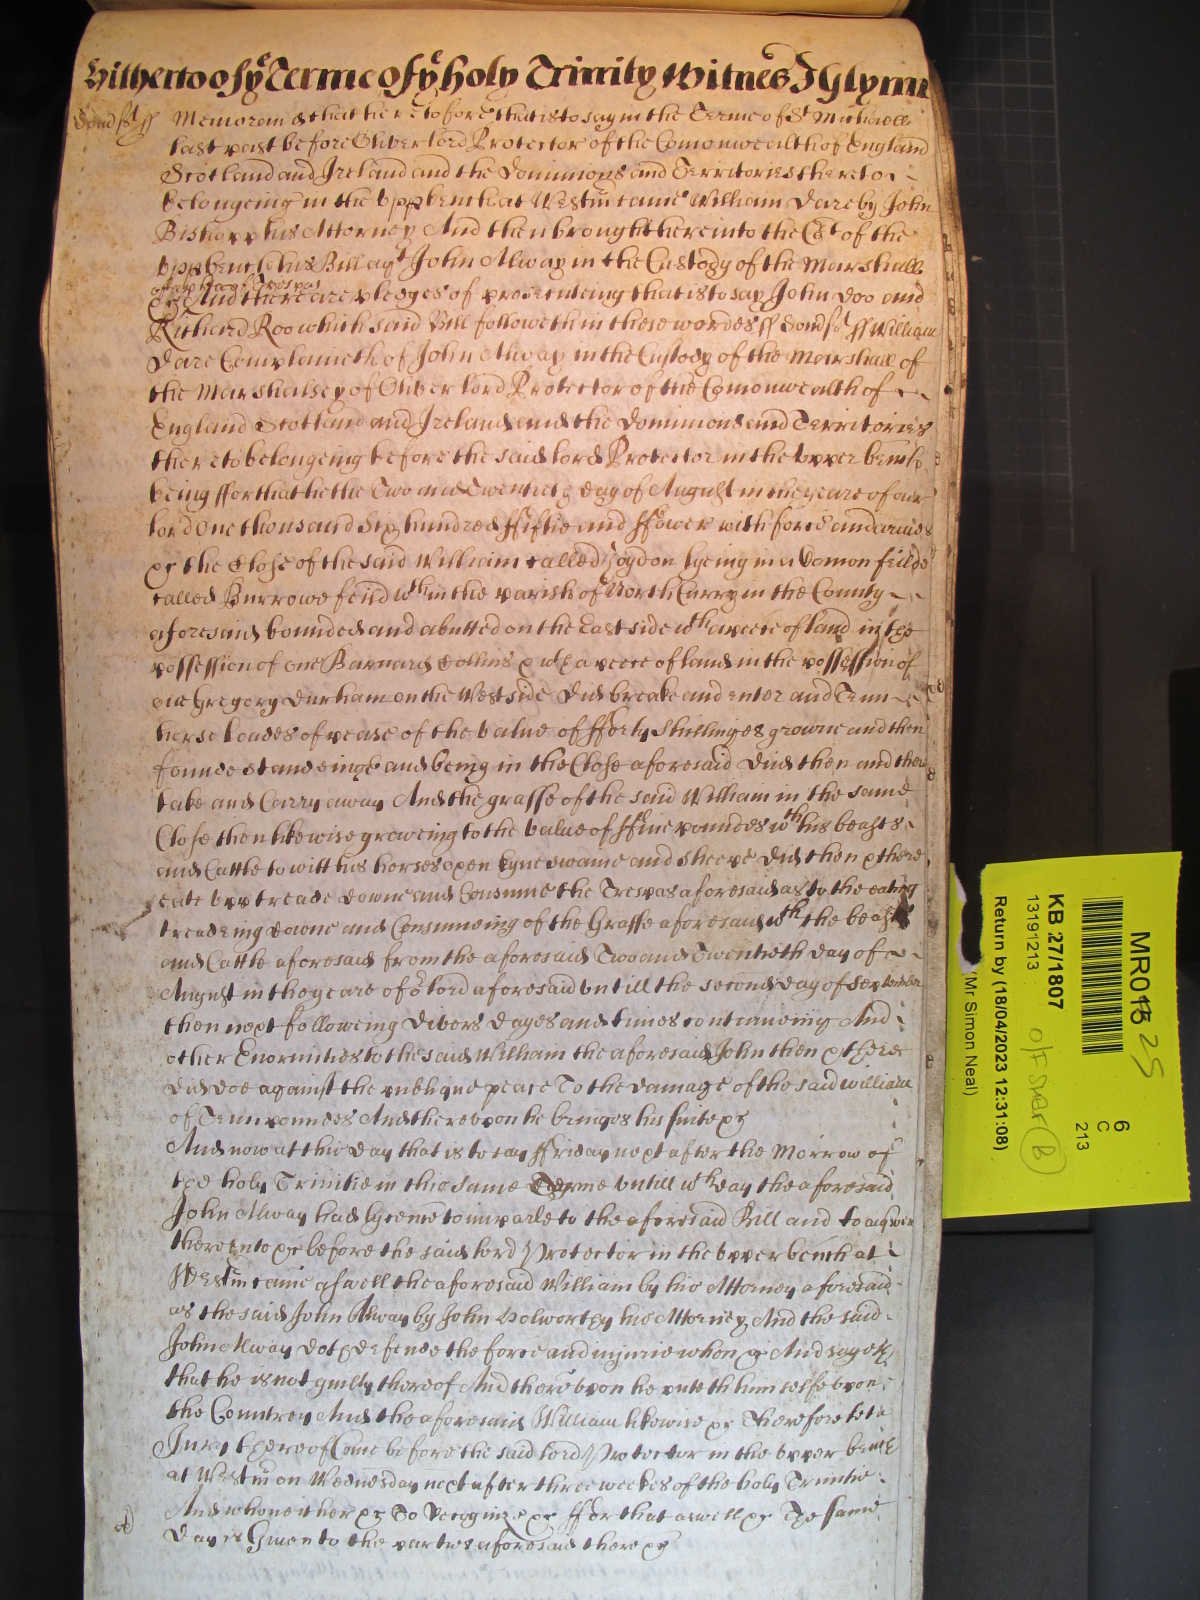 Hitherto of ye Terme of ye holy Trinity Witnes J Glynn
Memorand that heretofore that is to say in the Terme of St Michaell
last past before Oliver lord Protector of the Comonwealth of England
Scotland and Ireland and the Dominions and Territories thereto
belongeing in the upp bench at Westm came William Dare by John
Bishopp his Attorney And then brought here into the Cot of the
upp bench his Bill agt John Alway in the Custody of the Marshall
of a plea of Trespas
&c And there are pledges of prosecuteing that is to say John Doo and
Richard Roo which said Bill followeth in these wordes ss Somst ss William
Dare Complaineth of John Alway in the Custody of the Marshall of
the Marshalsey of Oliver lord Protector of the Comonwealth of
England Scotland and Ireland and the Dominions and Territories
thereto belongeing before the said lord Protector in the upper bench
being ffor that he the Two and Twentieth day of August in the yeare of our
lord One thousand Six hundred ffiftie and ffower with force and armes
&c the Close of the said William called Yogdon lyeing in a Comon feilde
called Burrowe feild wthin the parish of North Curry in the County
aforesaid bounded and abutted on the East side wth a peece of land in the
possession of one Barnard Collins & wth a peece of land in the possession of
one Gregory Durham on the West side did breake and enter and Tenn
horse loades of pease of the value of fforty Shillinges growne and then
founde standeinge and being in the Close aforesaid did then and there
take and Carry away And the grasse of the said William in the same
Close then likewise groweing to the value of ffive poundes wth his beasts
and Cattle to witt his horses oxen kyne swine and sheepe did then & there
eate upp treade downe and Consume the Trespas aforesaid as to the eating
treadeing downe and Consumeing of the Grasse aforesaid wth the beasts
and Cattle aforesaid from the aforesaid Two and Twentieth day of
August in the yeare of or lord aforesaid untill the second day of September
then next followeing divers dayes and times continueing And
other Enormities to the said William the aforesaid John then & there
did doe against the publique peace To the damage of the said william
of Tenn poundes And thereupon he bringes his suite &c
And now at this day that is to say ffriday next after the Morrow of
the holy Trinitie in this same Terme untill wch day the aforesaid
John Alway had lycence to imparle to the aforesaid Bill and to answer
thereunto &c before the said lord Protector in the upper bench at
Westm came aswell the aforesaid William by his Attorney aforesaid
as the said John Alway by John Holworthy his Attorney And the said
John Alway doth defende the force and injurie when &c And sayeth
that he is not guilty thereof And thereupon he putteth himselfe upon
the Countrey And the aforesaid William likewise &c Therefore let a
Jury thereof Come before the said lord Protector in the upper bench
at Westm on Wednesday next after three weekes of the holy Trinitie
And who neither &c To Recognize &c ffor that aswell &c The same
day is Given to the parties aforesaid there &c
MR01
25
6
C
213
KB 27/1807
13191213
Return by (18/04/2023 12:31:08)
(Mr Simon Neal)
B